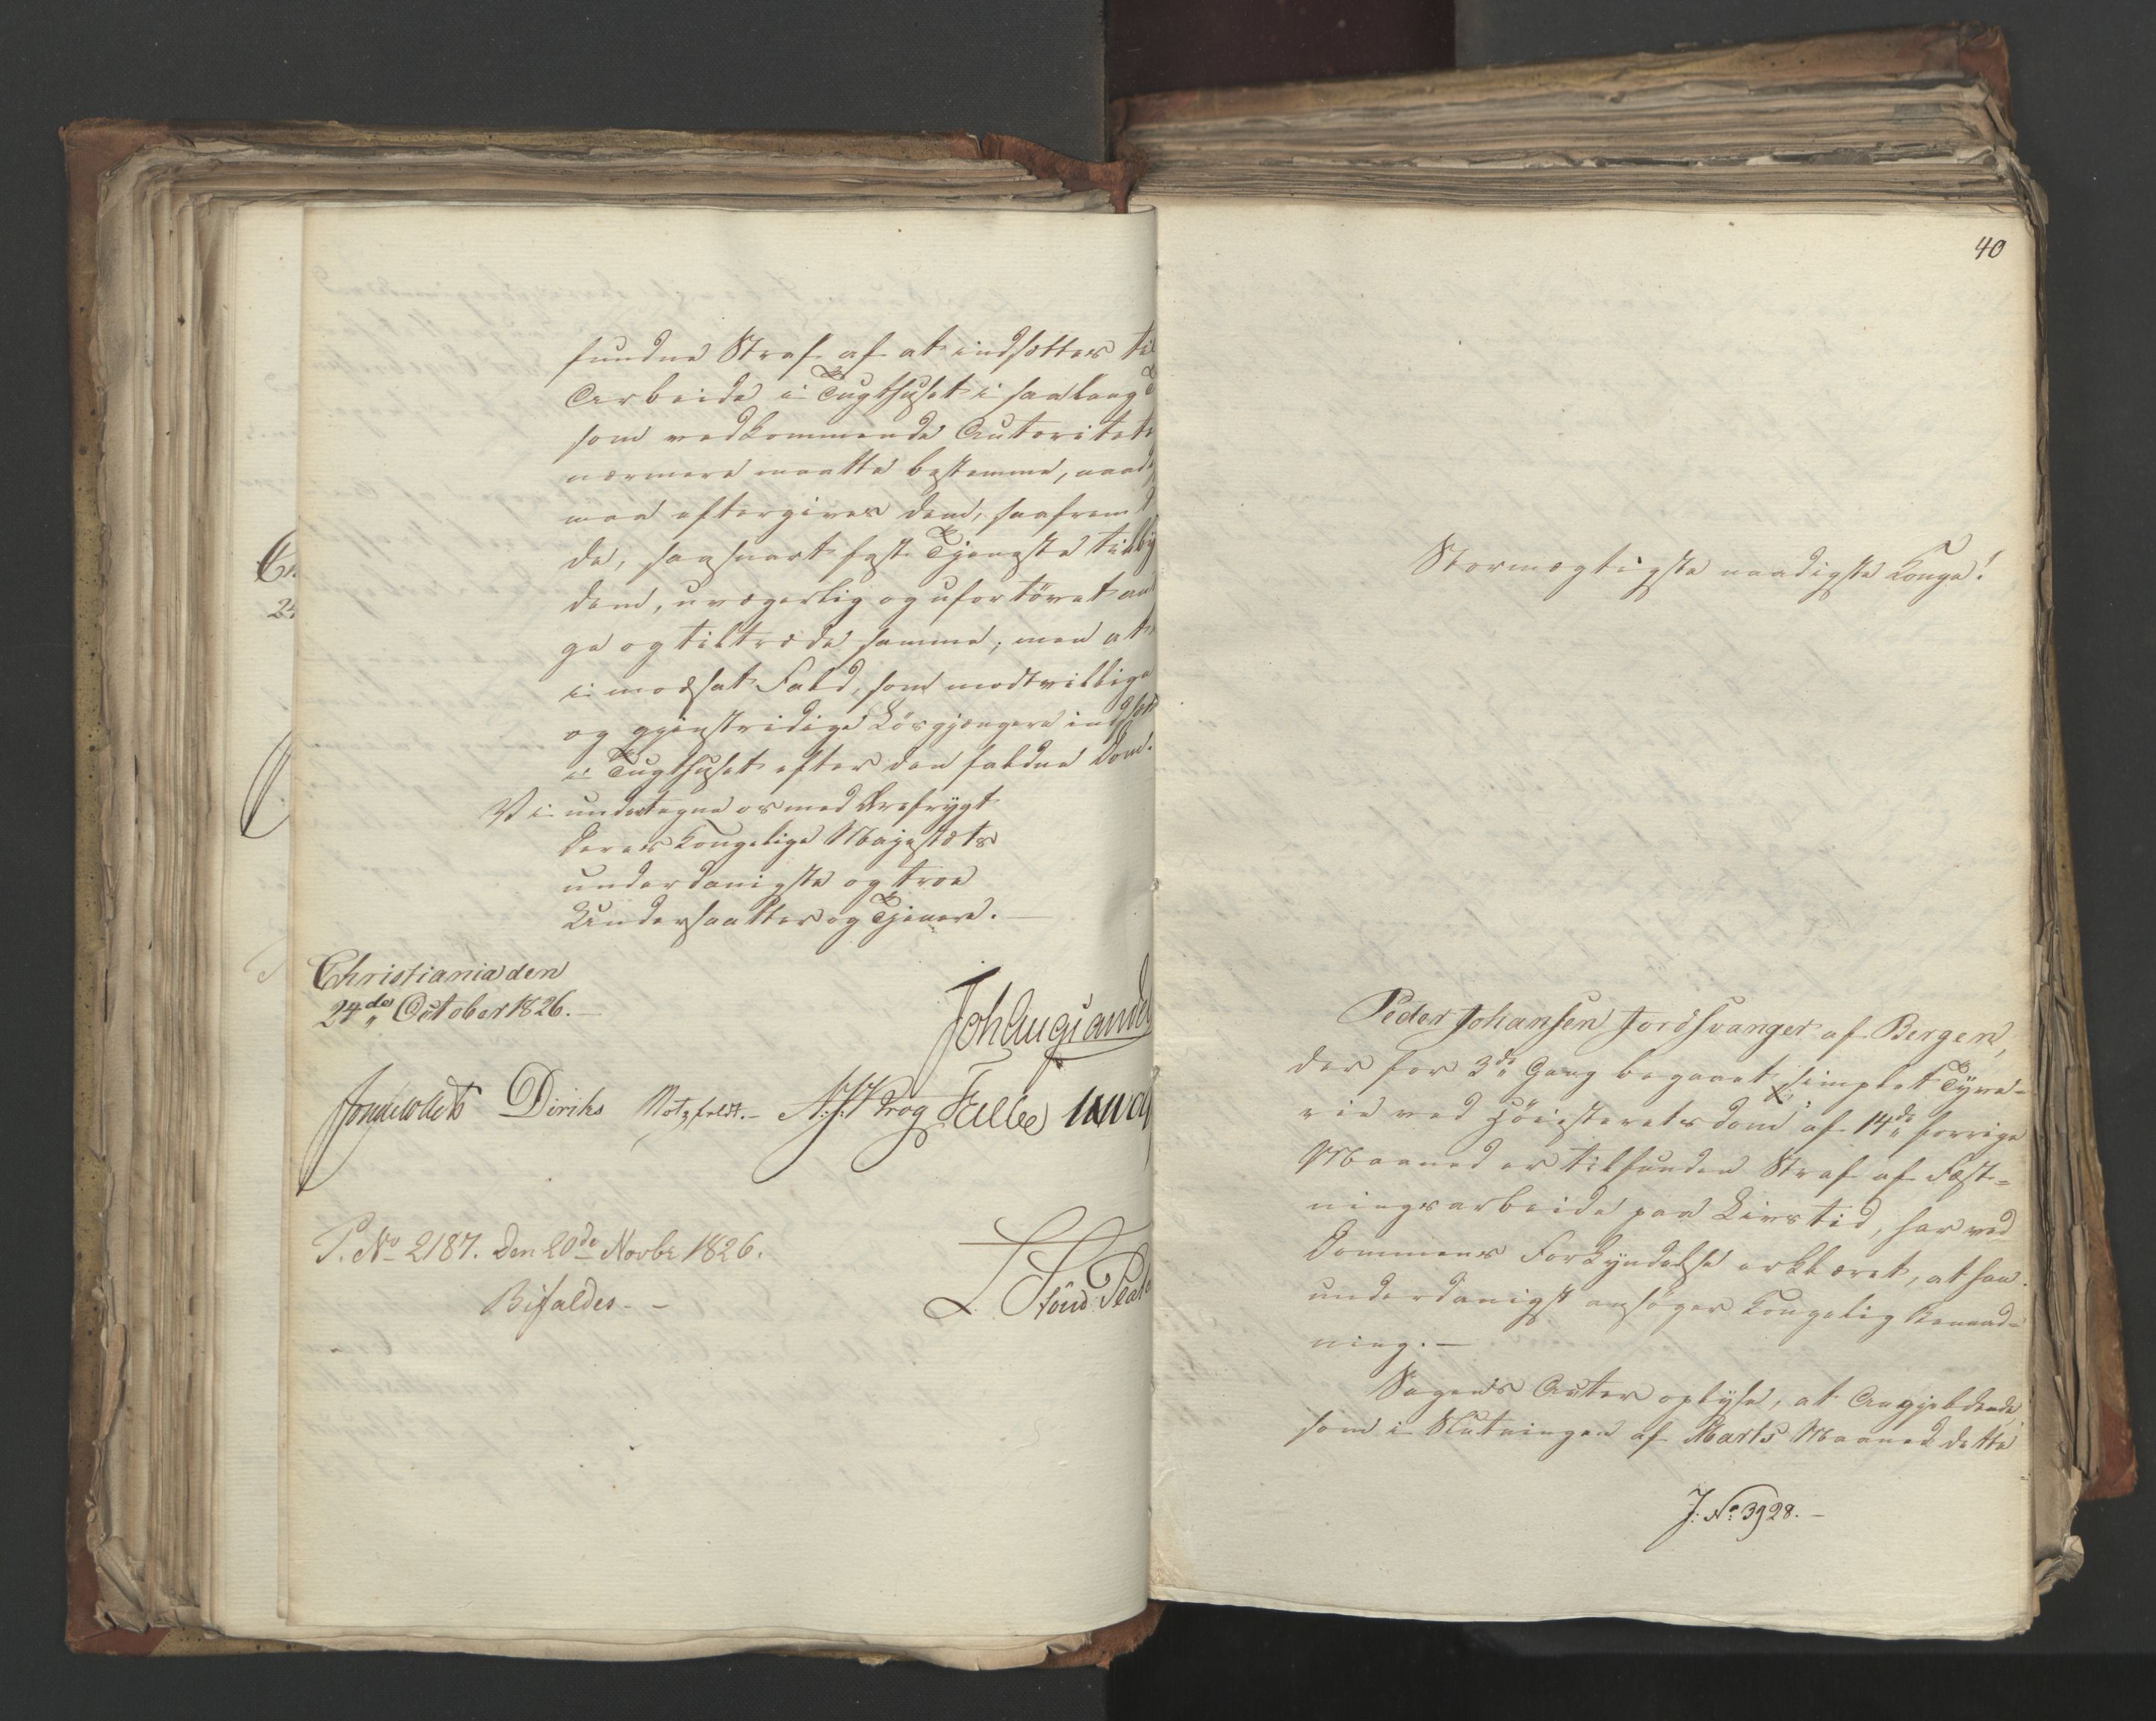 fundne Straf af at indsættes til
Arbeide i Tugthuset i saalang T
som vedkommende Autoritet
nærmere maatte bestemme, naad
maa eftergives dem, saafremt
de, saasnart fast Tjeneste tilby
dem, uvægerlig og ufortövet an
ge og tiltræde samme; men at
i modsat Fald, som modtvillige
og gjenstridige Lösgjængere indsæt
i Tugthuset efter den faldne Dom.
Vi undertegne os med Ærefrygt
Deres Kongelige Majestæts
underdanigste og troe
Undersaatter og Tjenere.
Christiania den
24de October 1826.
Joh Aug Sandel
Sommerhielm Diriks Motzfeldt. Krog Falbe
P. No 2187. Den 20de Novbr 1826.
Bifaldes.
40
Stormægtigste naadigste Konge!
Peder Johansen Jordsvanger af Bergen,
der for 3die Gang begaaet simplet Tyve-
rie ved Höiesterets Dom af 14de forrige
Maaned er tilfunden Straf af Fæst-
ningsarbeide paa Livstid, har ved
Dommens Forkyndelse erklæret, at han
underdanigst ansöger Kongelig Benaad-
ning.
Sagens Acter oplyse, at Angjeldende,
som i Slutningen af Marts Maaned dette
J. No 3928.